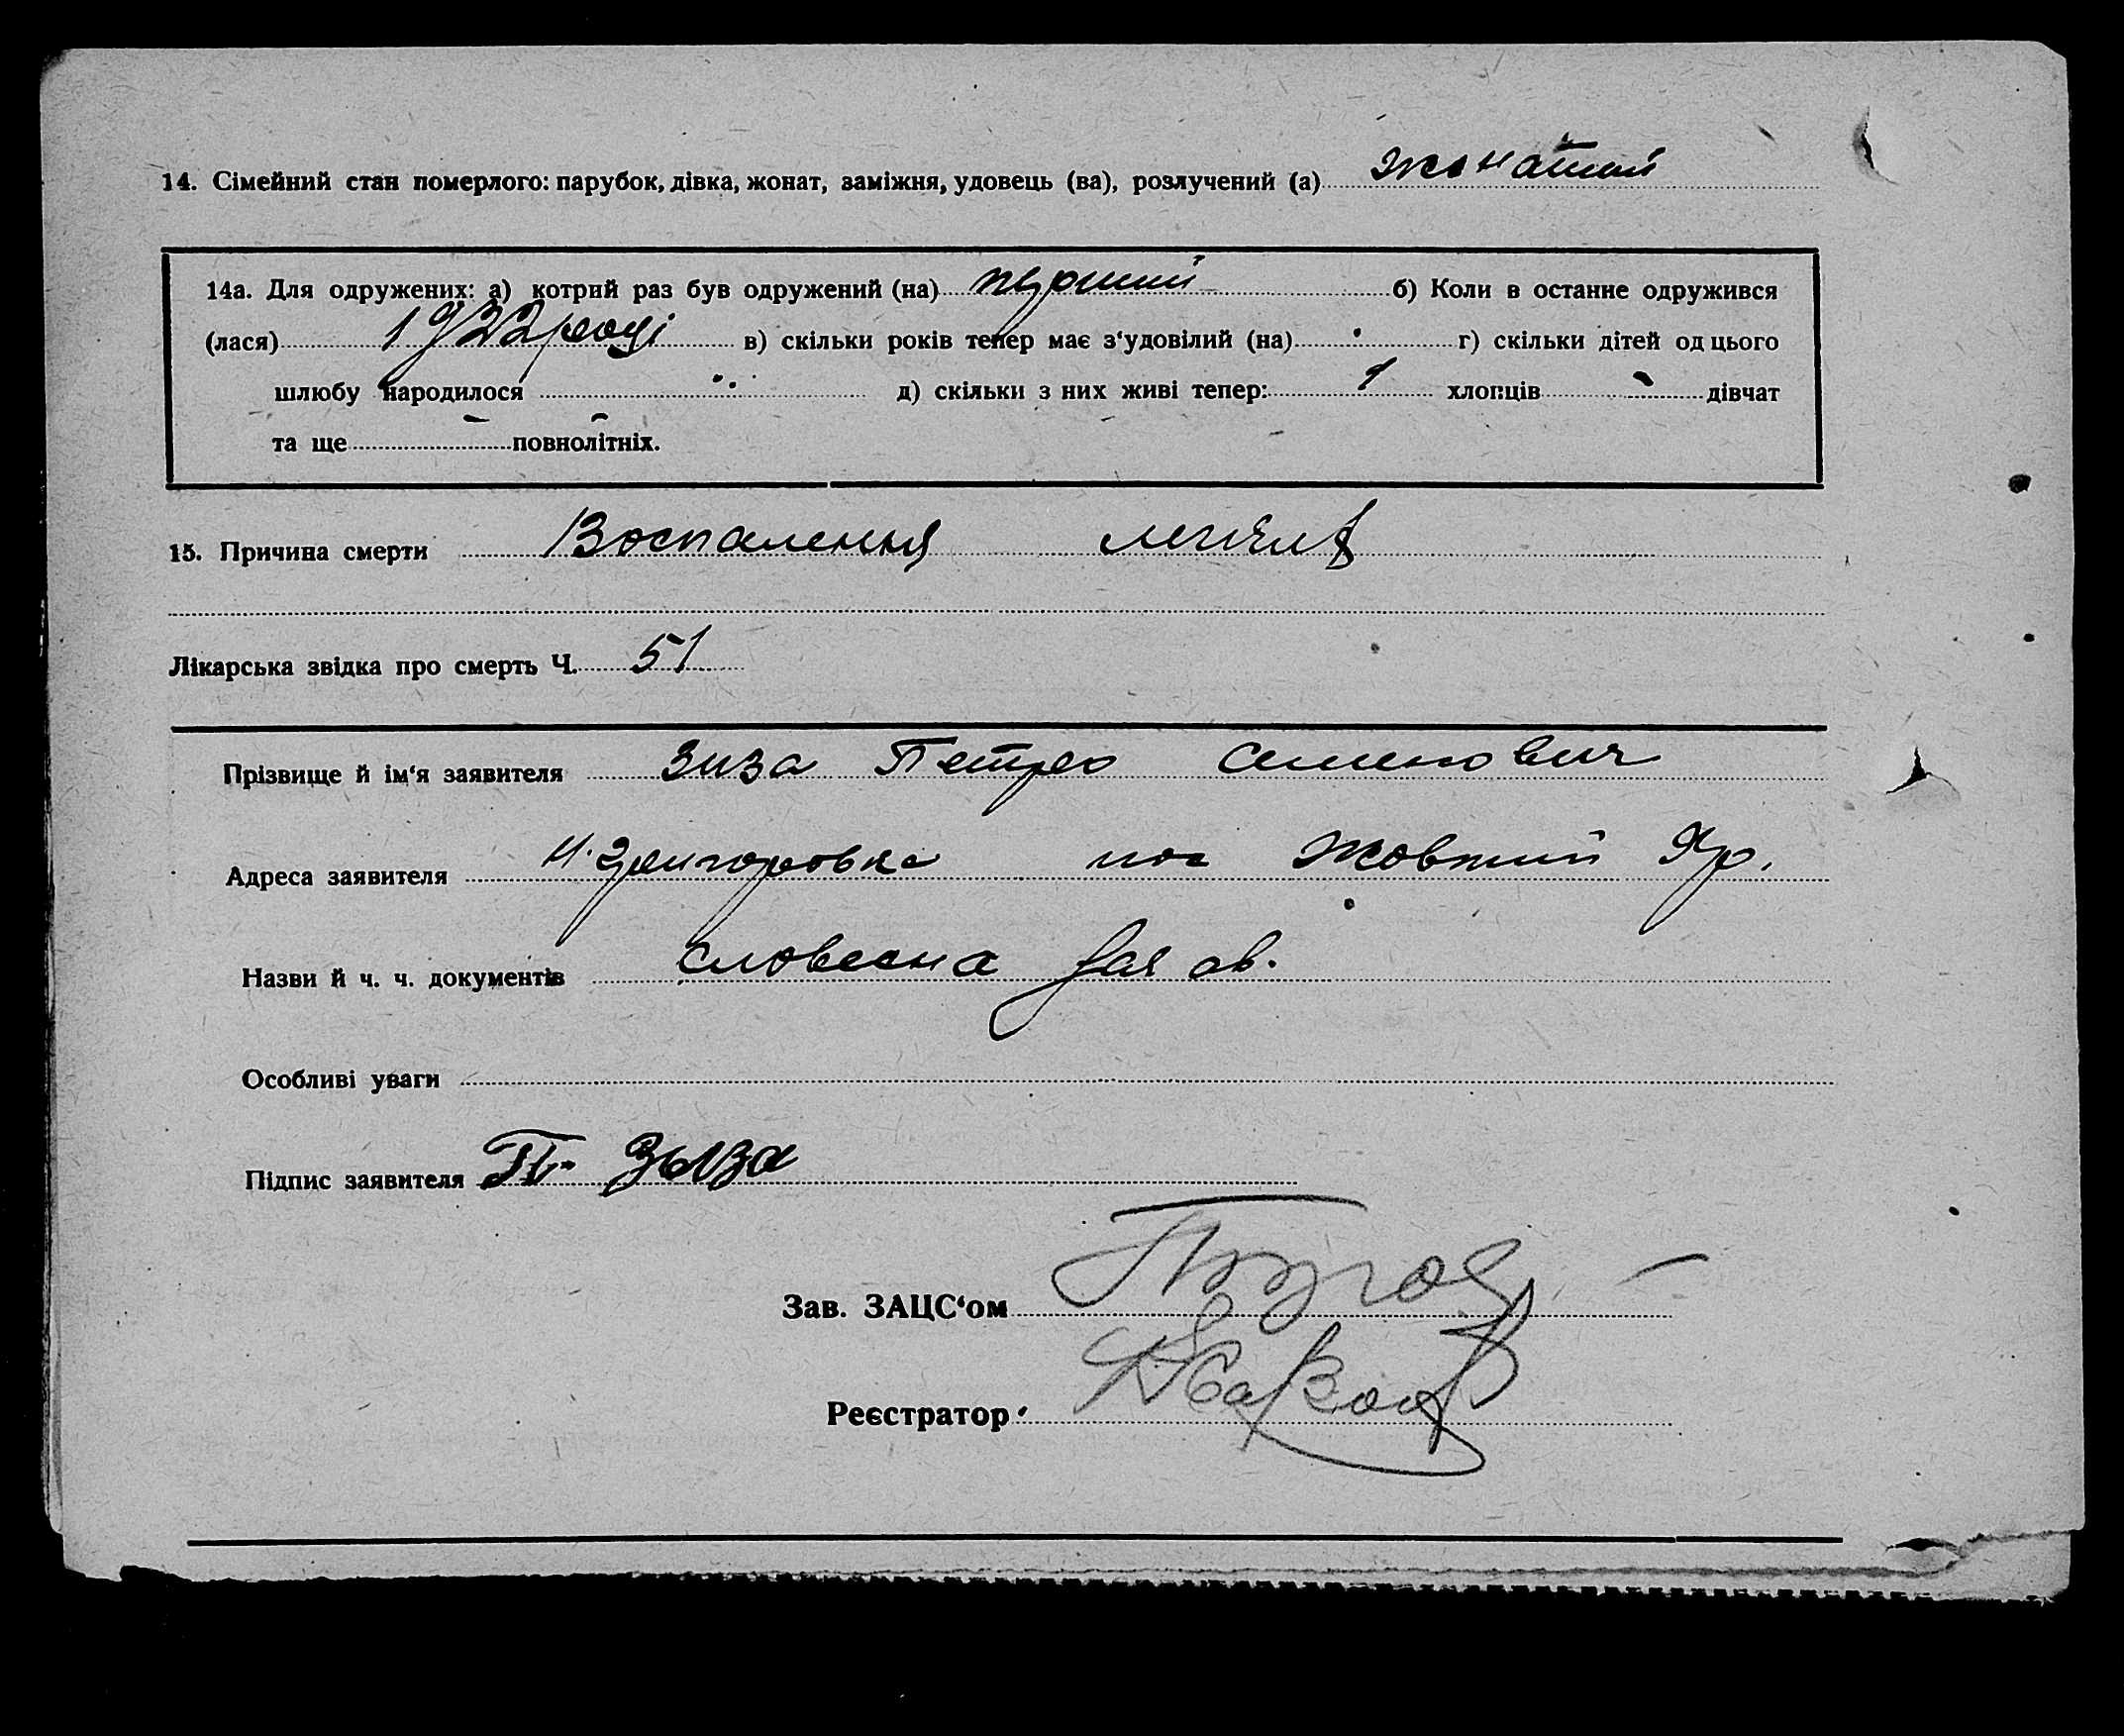 14. Сімейний стан померлого: парубок, дівка, жонат, заміжня, удовець (ва), розлучений (а) жонатий
14а. Для одружених: а) котрий раз був одружений (на) перший б) Коли в останнє одружився
(лася) 1922 році в) скільки років тепер має з‘удовілий (на) г) скільки дітей од цього
шлюбу народилося д) скільки з них живі тепер: 1 хлопців - дівчат
та ще - повнолітніх.
15. Причина смерти Воспалення
Лікарська звідка про смерть Ч. 51
Прізвище й ім‘я заявителя Зиза Петро Семенович
Адреса заявителя пос Жовтий Яр.
Назви й ч. ч. документів словесна заяв.
Особливі уваги
Підпис заявителя П. Зыза
Зав. ЗАЦС‘ом
Реєстратор